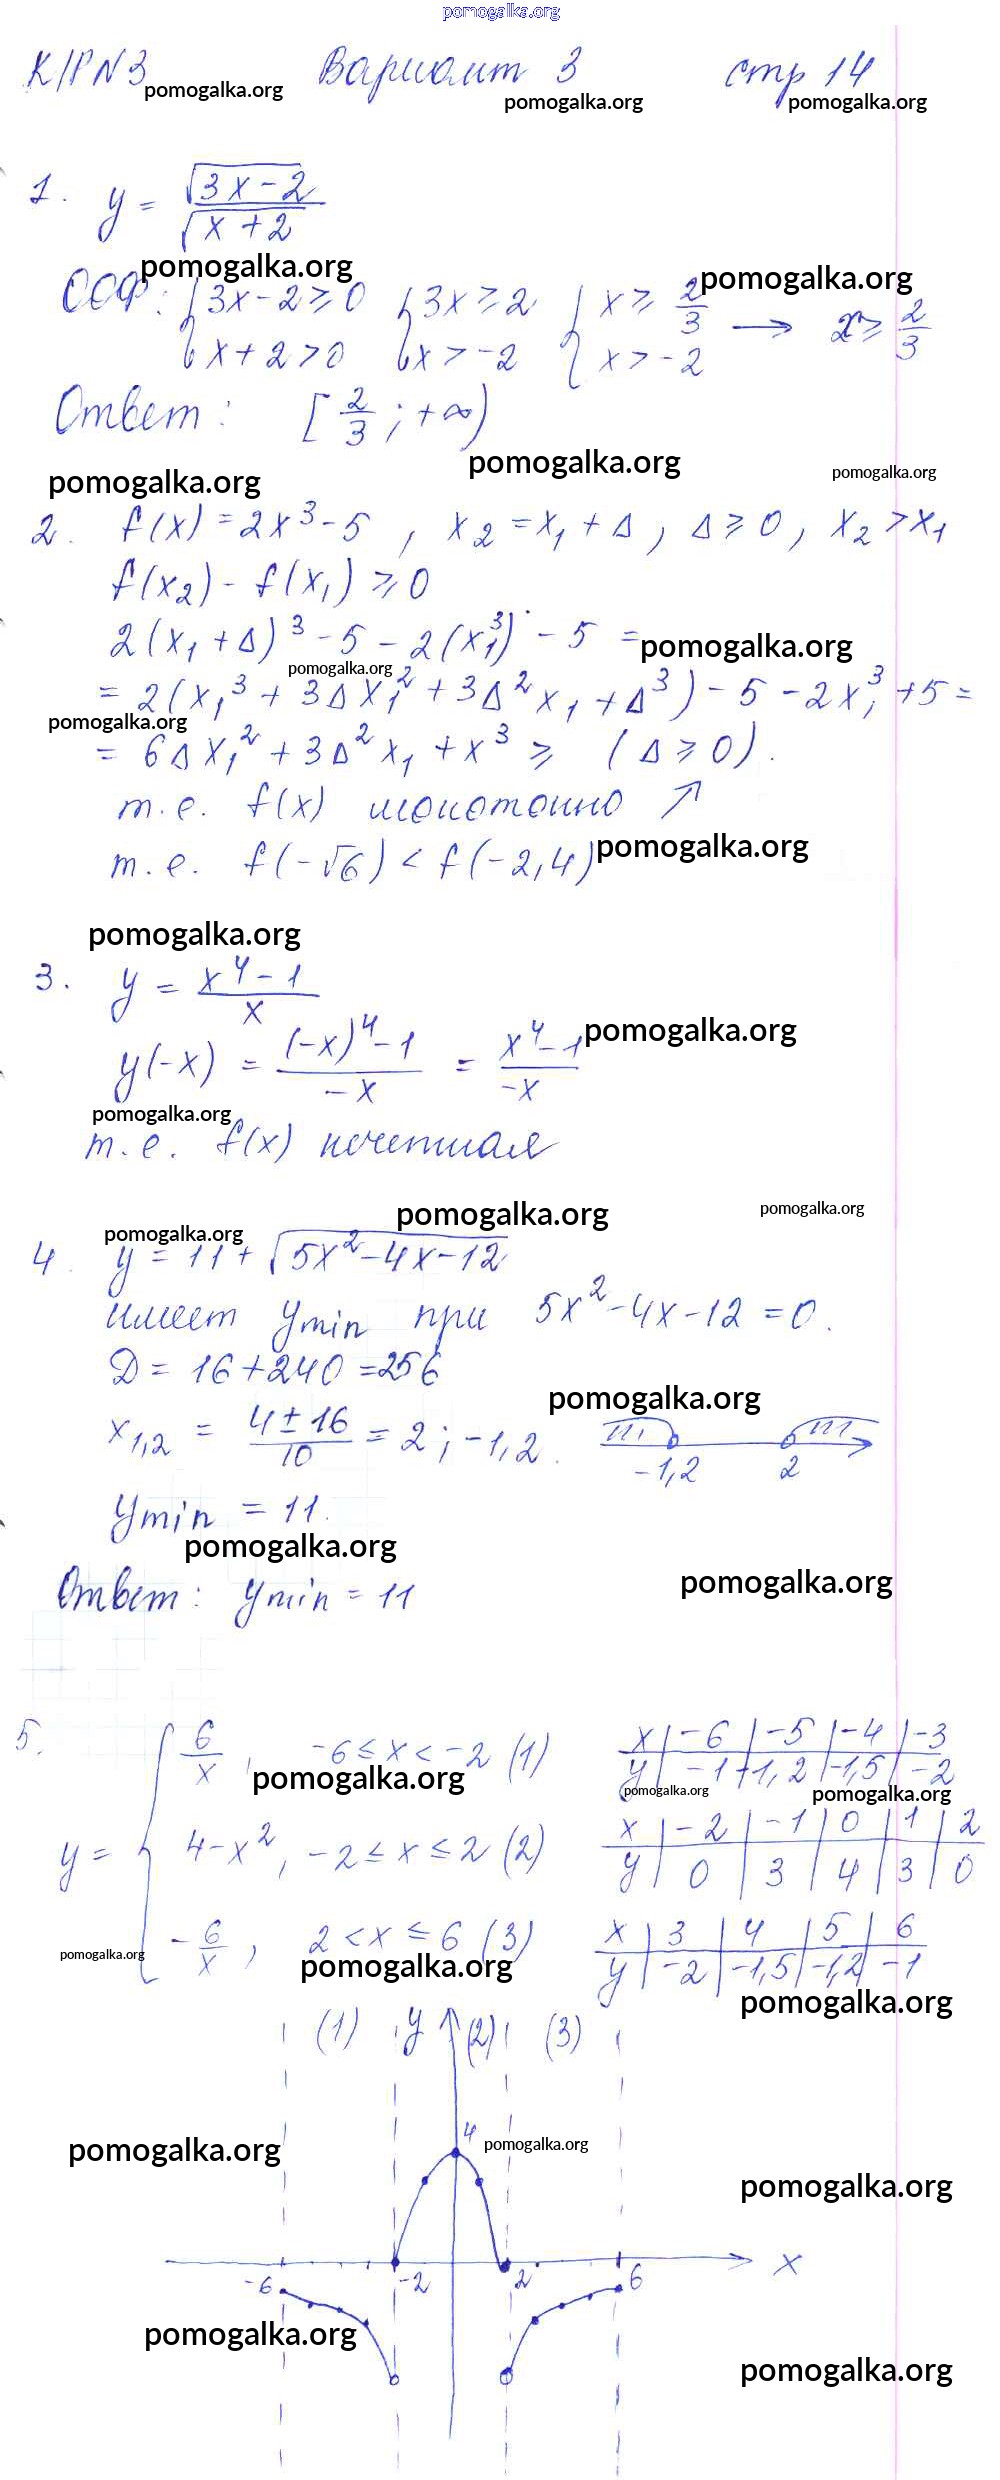 pomogalka.org
К/Р N3 Вариант 3 стр 14
pomogalka.org pomogalka.org pomogalka.org
1. y = √(3x-2)/√(x+2)
pomogalka.org pomogalka.org
ООФ: { 3x-2≥0 { 3x≥2 { x≥ 2/3 → x≥ 2/3
x+2>0 x>-2 x>-2
Ответ: [2/3; +∞)
pomogalka.org pomogalka.org pomogalka.org
2. f(x)=2x³-5, x₂=x₁+Δ, Δ≥0, x₂>x₁
f(x₂)-f(x₁)≥0
2(x₁+Δ)³-5-2(x₁³)-5=
pomogalka.org
pomogalka.org
=2(x₁³+3Δx₁²+3Δ²x₁+Δ³)-5-2x₁³+5=
pomogalka.org
=6Δx₁²+3Δ²x₁+x³≥ (Δ≥0).
т.е. f(x) монотонно ↗
т.е. f(-√6)<f(-2,4)
pomogalka.org
pomogalka.org
3. y = (x⁴-1)/x
y(-x) = ((-x)⁴-1)/(-x) = (x⁴-1)/(-x)
pomogalka.org
pomogalka.org
т.е. f(x) нечетная
pomogalka.org pomogalka.org
pomogalka.org
4. y=11+√(5x²-4x-12)
имеет ymin при 5x²-4x-12=0.
D=16+240=256
pomogalka.org
x₁,₂ = (4±16)/10 = 2; -1,2. -1,2 2
ymin = 11.
pomogalka.org
pomogalka.org
Ответ: ymin=11
5. y = { 6/x, -6≤x<-2 (1) x | -6 | -5 | -4 | -3
y | -1 | -1,2 | -1,5 | -2
pomogalka.org pomogalka.org pomogalka.org
4-x², -2≤x≤2 (2) x | -2 | -1 | 0 | 1 | 2
y | 0 | 3 | 4 | 3 | 0
-6/x, 2<x≤6 (3) x | 3 | 4 | 5 | 6
y | -2 | -1,5 | -1,2 | -1
pomogalka.org pomogalka.org pomogalka.org
(1) y (2) (3)
4
pomogalka.org pomogalka.org
pomogalka.org
x
-6 -2 2 6
pomogalka.org
pomogalka.org